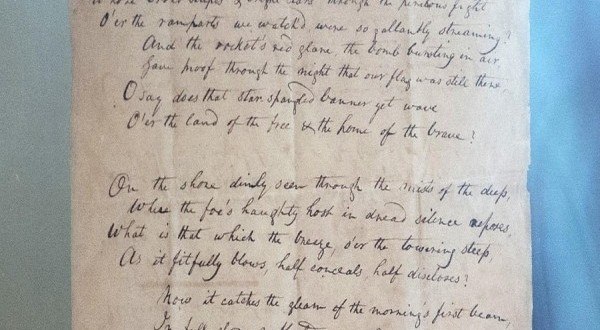 Whose broad stripes & bright stars through the perilous fight
O'er the ramparts we watch'd were so gallantly streaming?
And the rocket's red glare, the bomb bursting in air,
Gave proof through the night that our flag was still there
O say does that star-spangled banner yet wave
O'er the land of the free & the home of the brave?
On the shore dimly seen through the mists of the deep,
Where the foe's haughty host in dread silence reposes,
What is that which the breeze, o'er the towering steep,
As it fitfully blows, half conceals, half discloses?
Now it catches the gleam of the morning's first beam,
In full